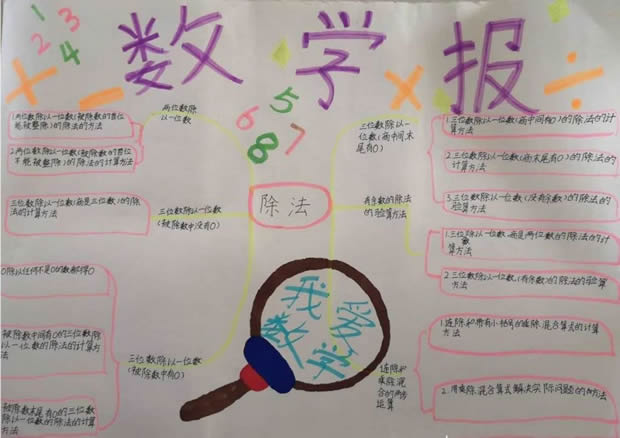 1 2 3 4
数学报
5 6 7 8
除法
两位数除
以一位数
1.两位数除以一位数(被除数的首位
能被整除)的除法的方法
2.两位数除以一位数(被除数的首位
不能被整除)的除法的计算方法
三位数除以一位数
(被除数中没有0)
三位数除以一位数(商是三位数)的除
法的计算方法
三位数除以一位数
(被除数中有0)
0除以任何不是0的数都得0
被除数中间有0的三位数除
以一位数的除法的计算方
法
被除数末尾有0的三位数
除以一位数的除法的计算
方法
三位数除以一
位数(商中间末
尾有0)
1.三位数除以一位数(商中间有0)的除法的计
算方法
2.三位数除以一位数(商末尾有0)的除法的
计算方法
3.三位数除以一位数(没有余数)的除法的
验算方法
有余数的除法
的验算方法
1.三位除以一位数,商是两位数的除法的计
数
算方法
2.三位数除以一位数,(有余数)的除法的验算
方法
连除和
乘除混
合的两步
运算
1.连除和带有小括号的连除.混合算式的计算
方法
2.用乘除混合算式解决实际问题的的方法
我爱
数学